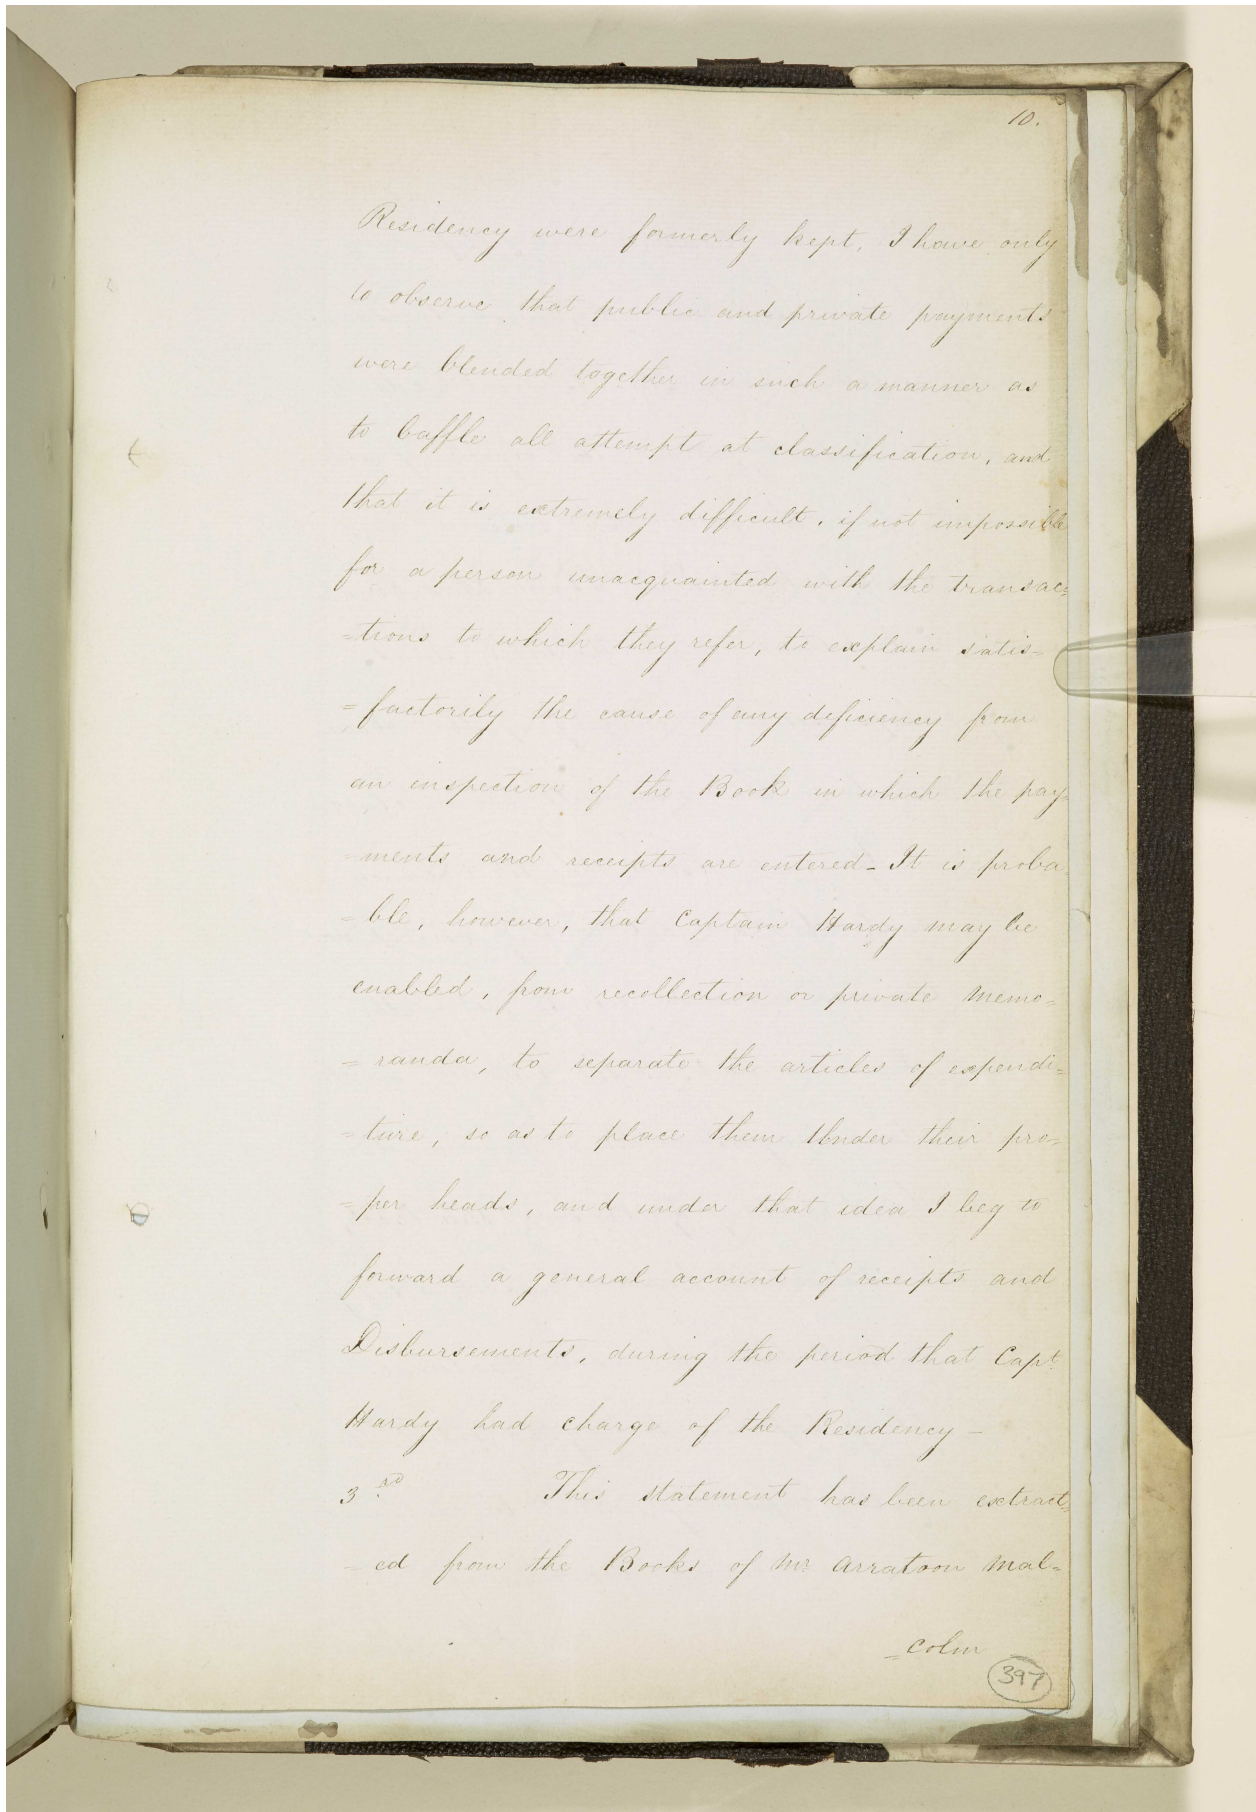 10.
Residency were formerly kept, I have only
to observe that public and private payments
were blended together in such a manner as
to baffle all attempt at classification, and
that it is extremely difficult, if not impossible
for a person unacquainted with the transac=
=tions to which they refer, to explain satis=
=factorily the cause of any deficiency from
an inspection of the Book in which the pay=
=ments and receipts are entered_ It is proba=
=ble, however, that Captain Hardy may be
enabled, from recollection or private memo=
=randa, to separate the articles of expendi=
=ture, so as to place them Under their pro=
=per heads, and under that idea I beg to
forward a general account of receipts and
Disbursements, during the period that Capt.
Hardy had charge of the Residency_
3rd This statement has been extract=
=ed from the Books of Mr Arratoon Mal=
=colm
397